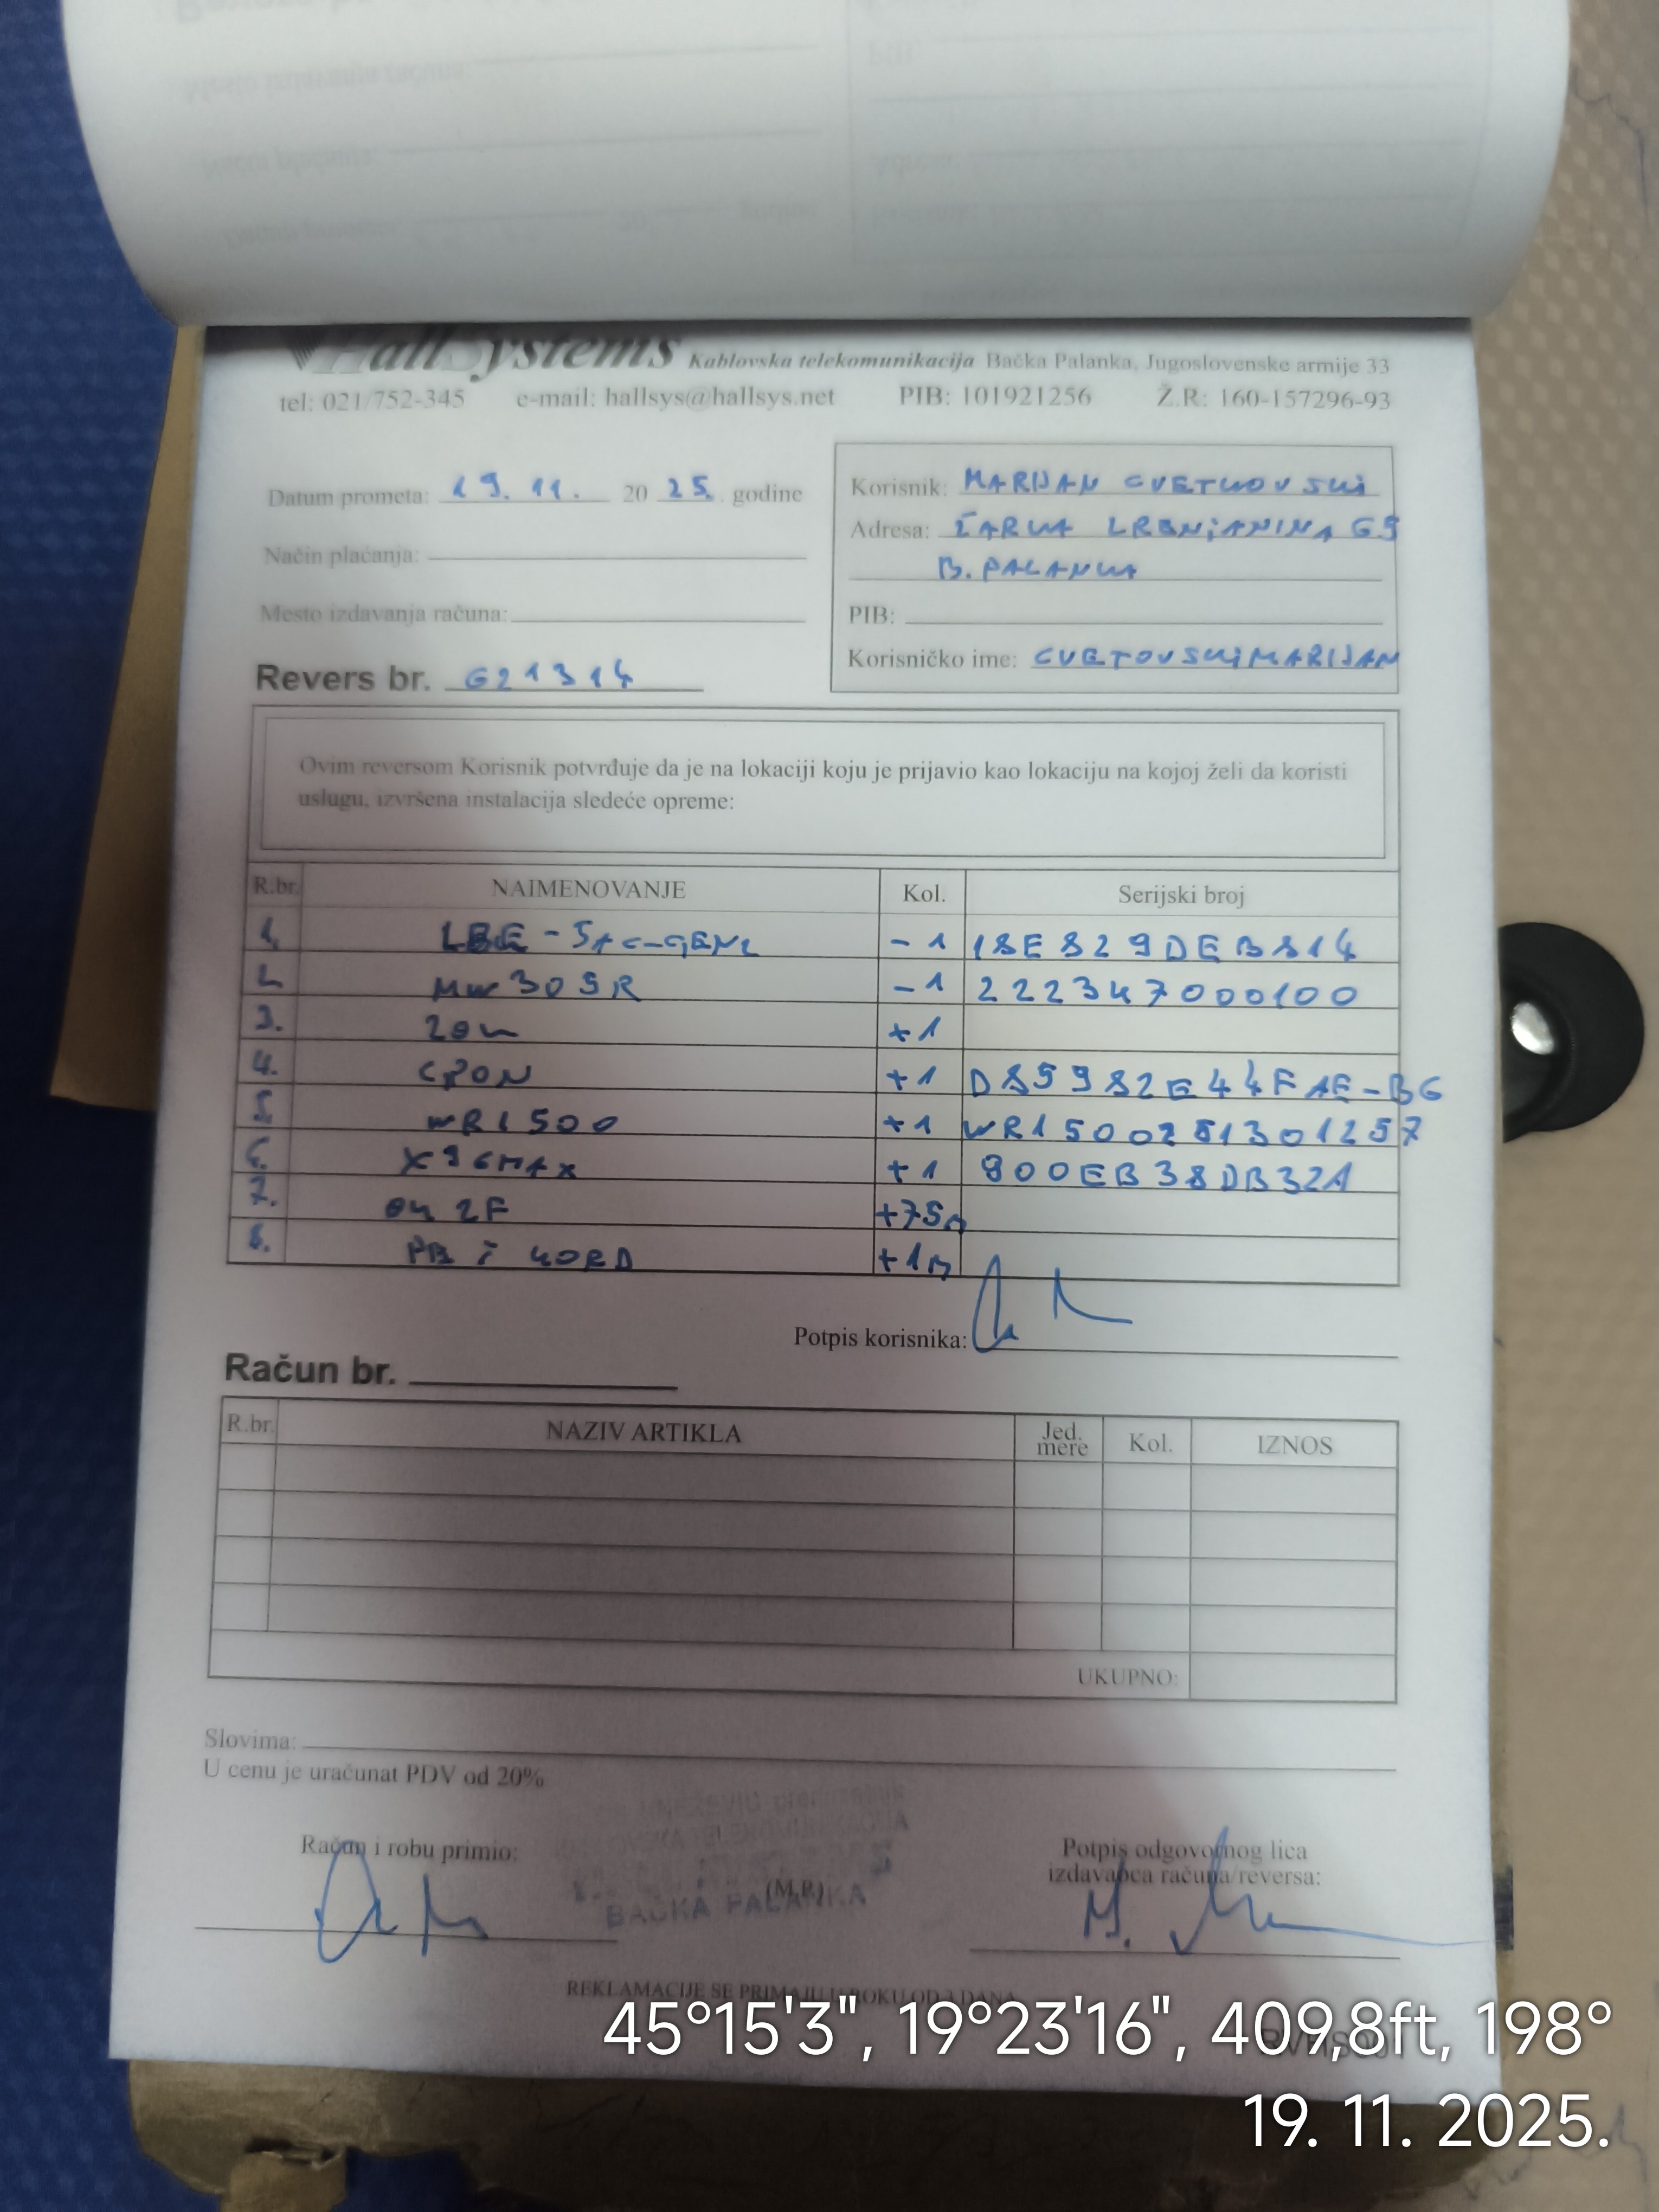 HallSystems Kablovska telekomunikacija Bačka Palanka, Jugoslovenske armije 33
tel: 021/752-345 e-mail: hallsys@hallsys.net PIB: 101921256 Ž.R: 160-157296-93
Datum prometa: 19. 11. 20 25. godine
Način plaćanja:
Mesto izdavanja računa:
Revers br. 621314
Korisnik: MARIJAN CVETKOVSKI
Adresa: ŽARKA ZRENJANINA 69
B. PALANKA
PIB:
Korisničko ime: CVETOVSKIMARIJAN
Ovim reversom Korisnik potvrđuje da je na lokaciji koju je prijavio kao lokaciju na kojoj želi da koristi
uslugu, izvršena instalacija sledeće opreme:
R.br. NAIMENOVANJE Kol. Serijski broj
1. LBE-5AC-GEN2 -1 18E829DEB814
2. MW305R -1 222347000100
3. ZOK +1
4. GPON +1 D85982E44FAE-BG
5. WR1500 +1 WR1500251301257
6. X96MAX +1 900EB38DB32A
7. OK 2F +75m
8. PB i KORD +1m
Potpis korisnika:
Račun br.
R.br. NAZIV ARTIKLA Jed. mere Kol. IZNOS
UKUPNO:
Slovima:
U cenu je uračunat PDV od 20%
Račun i robu primio:
(M.P.)
BAČKA PALANKA
Potpis odgovornog lica
izdavaoca računa/reversa:
REKLAMACIJE SE PRIMAJU U ROKU OD 3 DANA
45°15'3", 19°23'16", 409,8ft, 198°
19. 11. 2025.